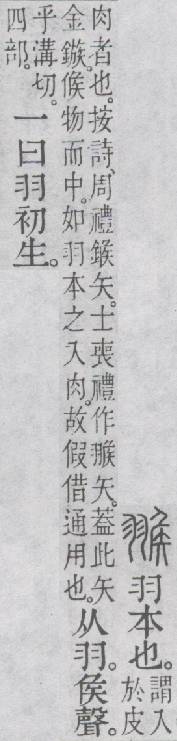 翭羽本也。謂入
於皮
肉者也。按詩、周禮鍭矢。士喪禮作翭矢。葢此矢
金鏃。候物而中。如羽本之入肉。故假借通用也。从羽。矦聲。
乎溝切。
四部。一曰羽初生。